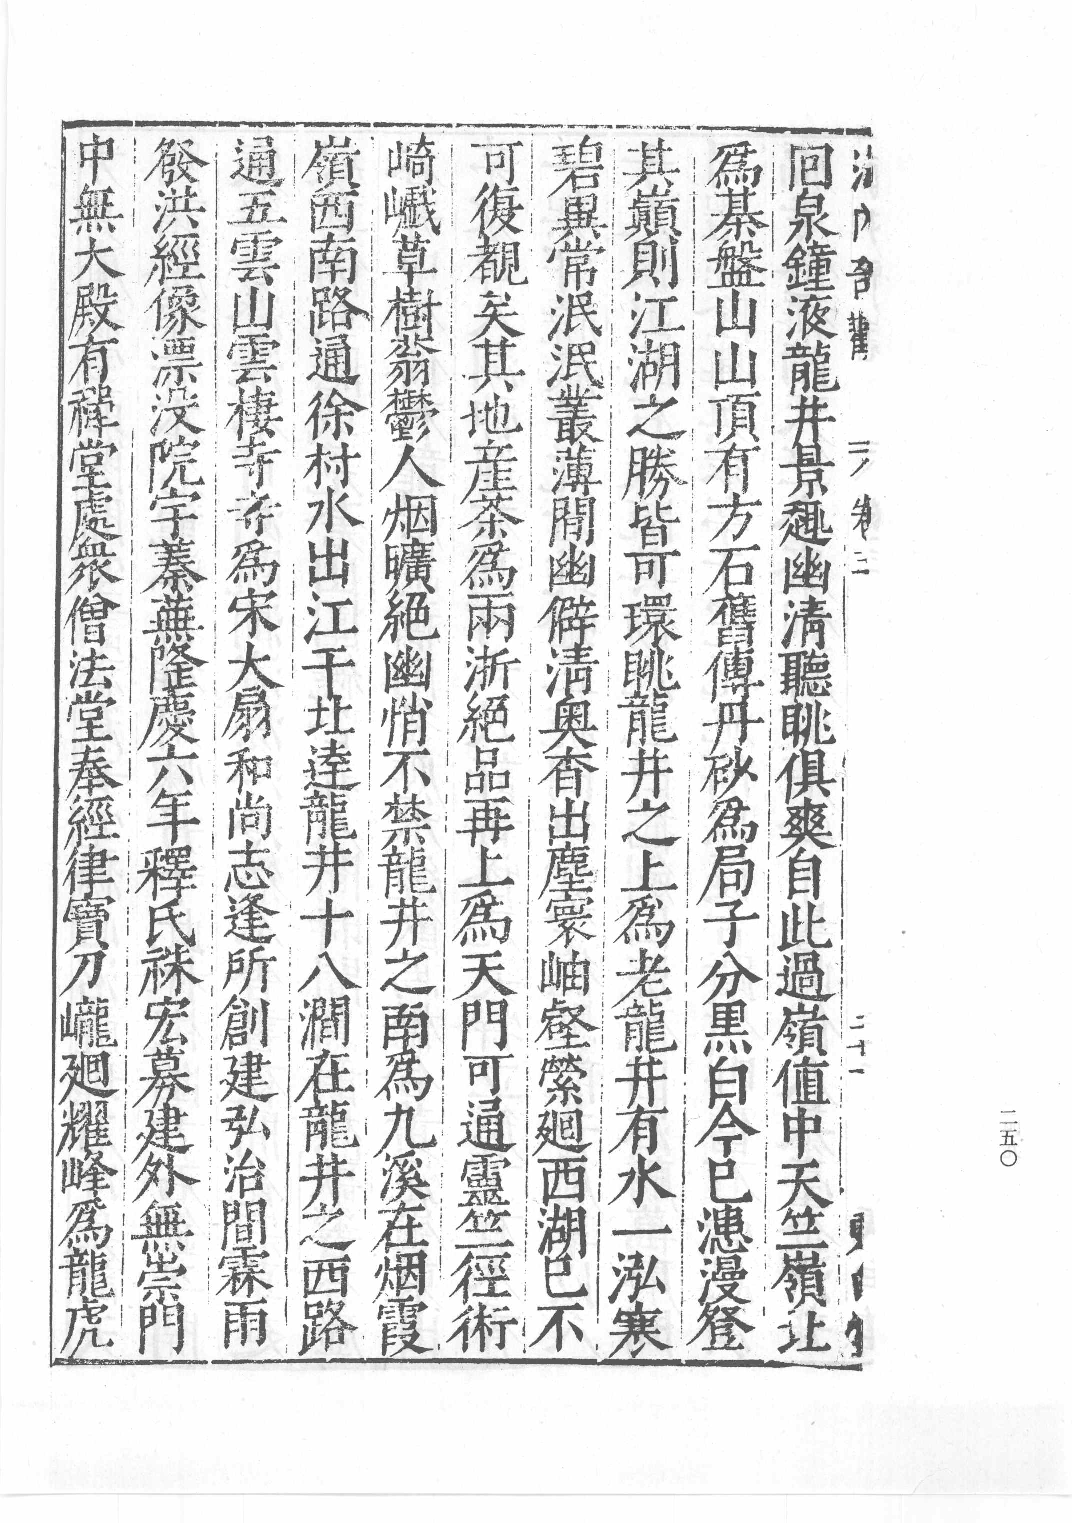 海內奇觀 卷三 二十一
回泉鐘液龍井景趣幽清聽眺俱爽自此過嶺値中天竺嶺北
爲棊盤山山頂有方石舊傳丹砂爲局子分黑白今已漶漫登
其巔則江湖之勝皆可環眺龍井之上爲老龍井有水一泓寒
碧異常泯泯叢薄間幽僻清奧杳出塵寰岫壑縈廻西湖已不
可復覩矣其地産茶爲兩浙絕品再上爲天門可通靈竺徑術
崎巇草樹蓊鬱人烟曠絕幽悄不禁龍井之南爲九溪在烟霞
嶺西南路通徐村水出江干北達龍井十八澗在龍井之西路
通五雲山雲棲寺寺爲宋大扇和尚志逢所創建弘治間霖雨
發洪經像漂没院宇蓁蕪隆慶六年釋氏祩宏募建外無崇門
中無大殿有禪堂處衆僧法堂奉經律寶刀巄廻耀峰爲龍虎
二五〇